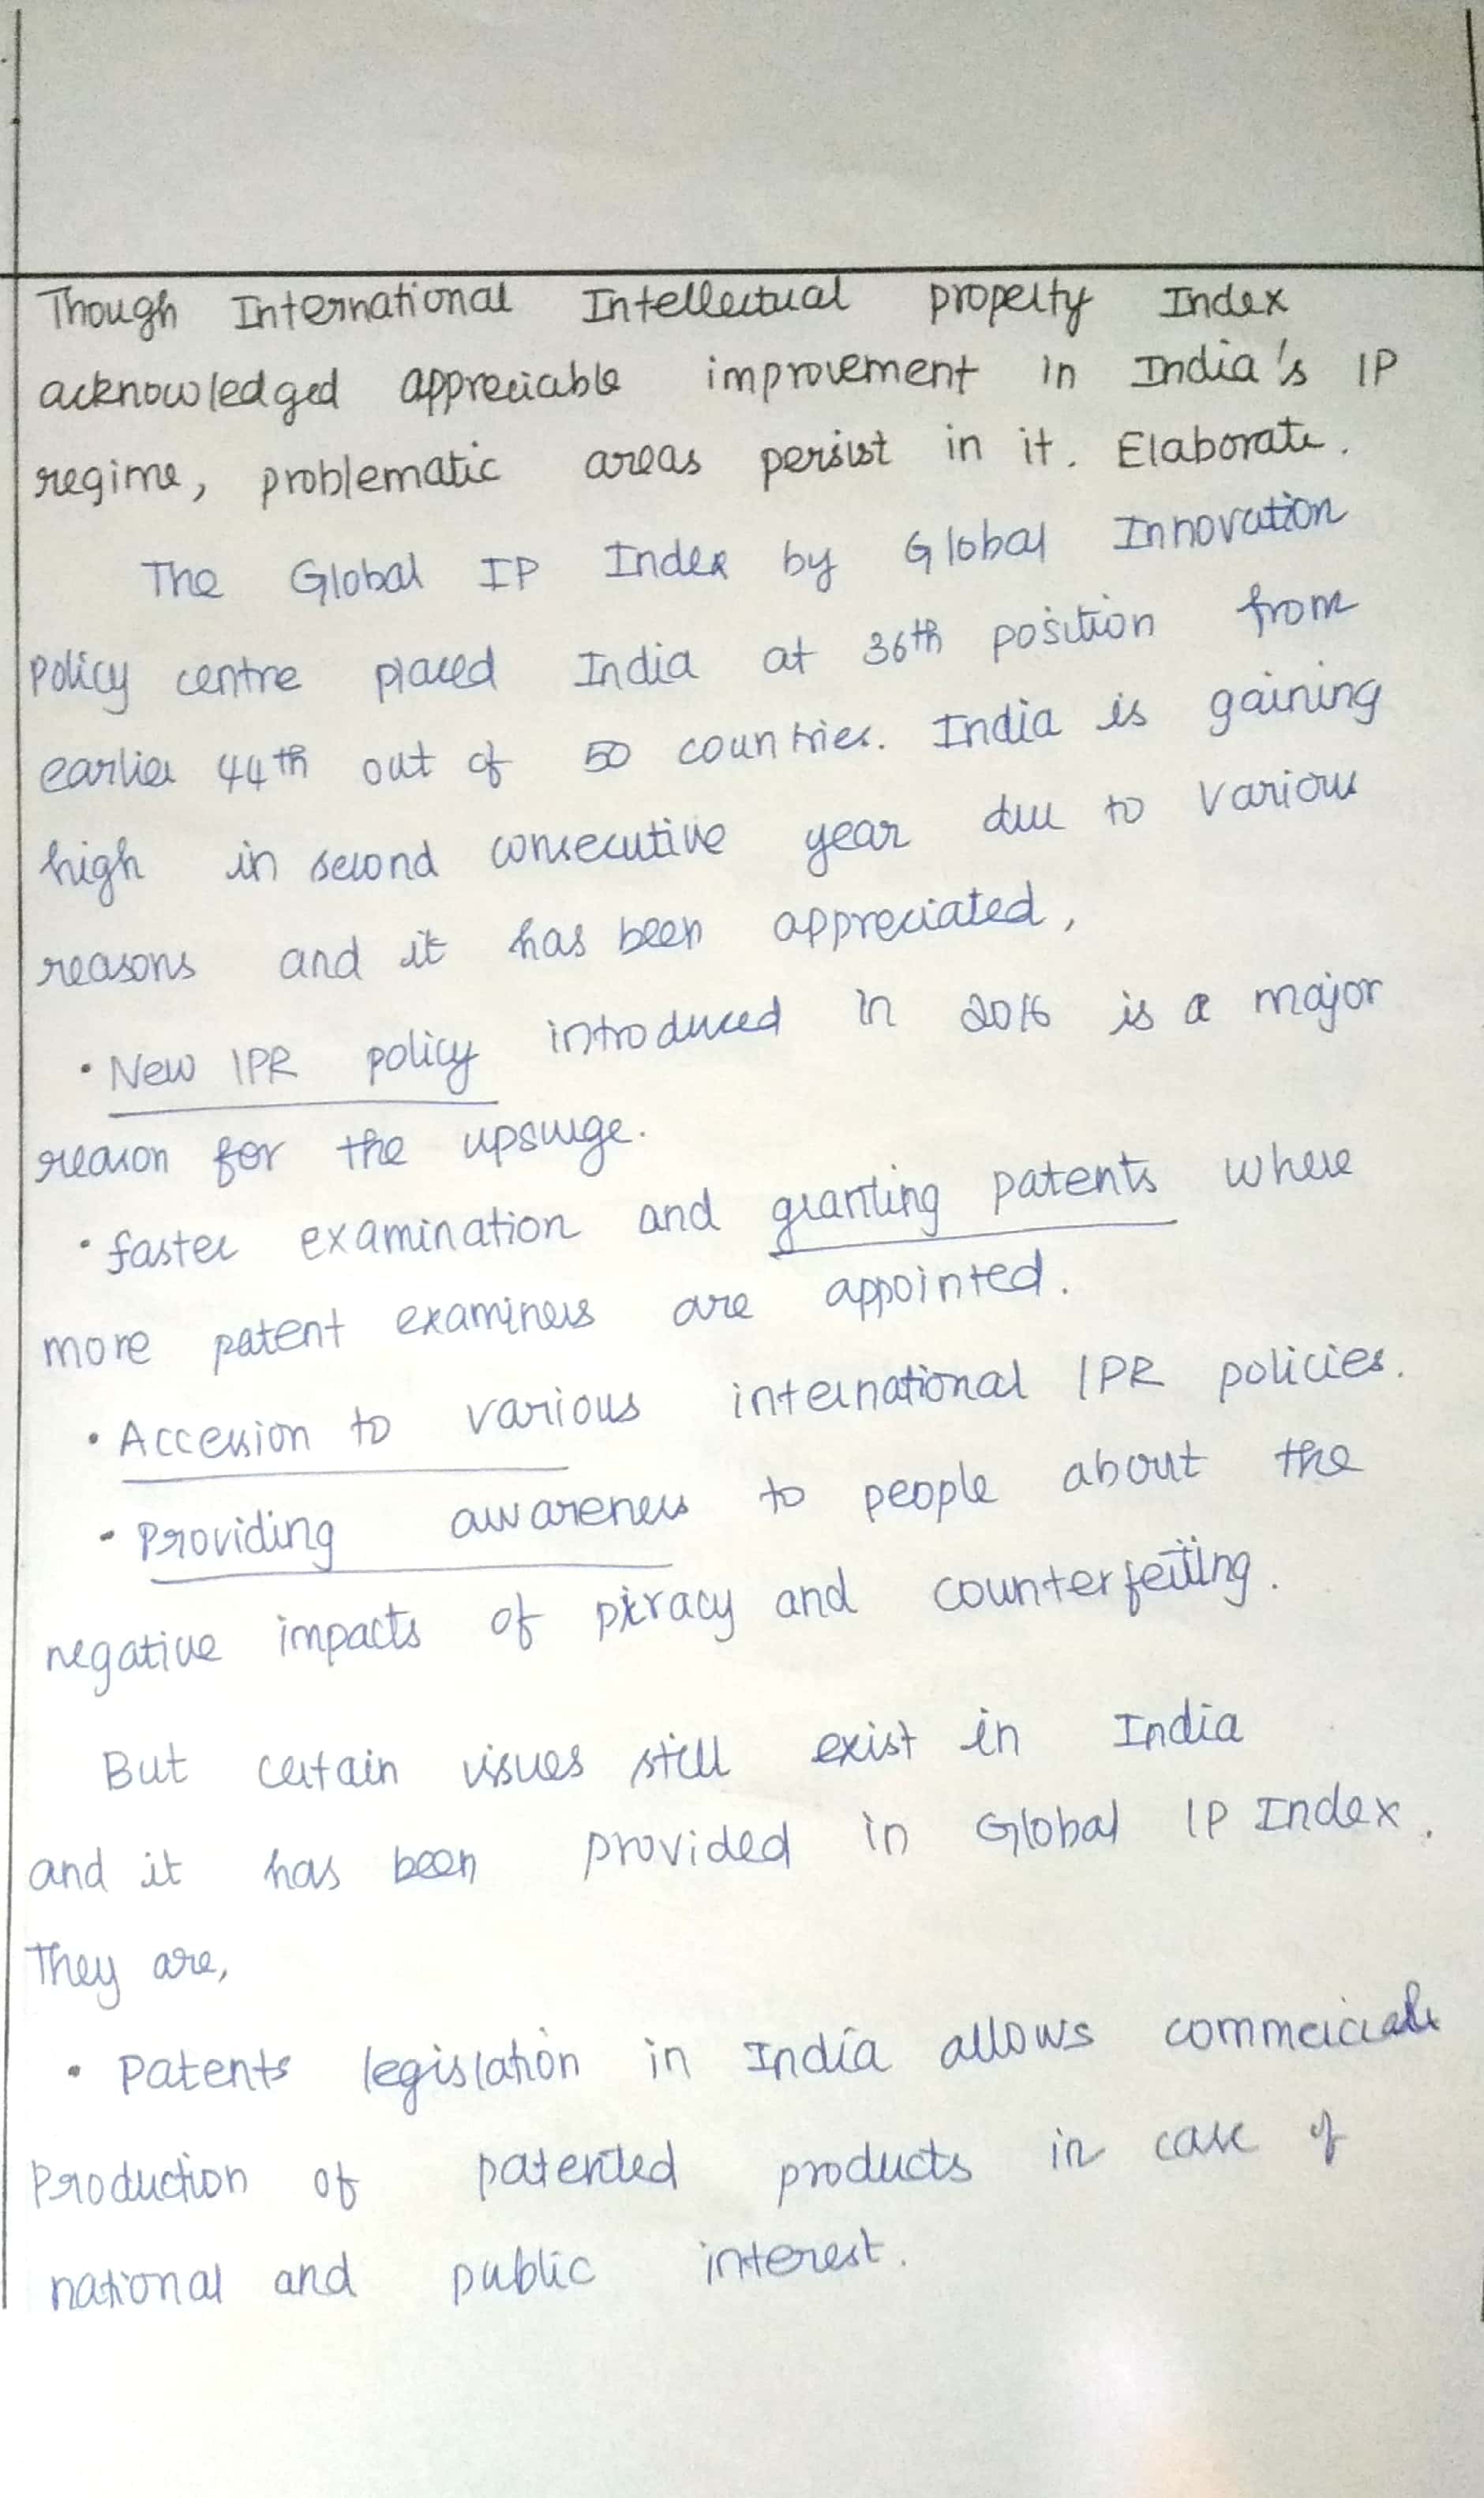 Though International Intellectual property Index
acknowledged appreciable improvement in India's IP
regime, problematic areas persist in it. Elaborate.
The Global IP Index by Global Innovation
policy centre placed India at 36th position from
earlier 44th out of 50 countries. India is gaining
high in second consecutive year due to various
reasons and it has been appreciated,
• New IPR policy introduced in 2016 is a major
reason for the upsurge.
• faster examination and granting patents where
more patent examiners are appointed.
• Accession to various international IPR policies.
- Providing awareness to people about the
negative impacts of piracy and counterfeiting.
But certain issues still exist in India
and it has been provided in Global IP Index.
They are,
• Patents legislation in India allows commerciale
Production of patented products in case of
national and public interest.